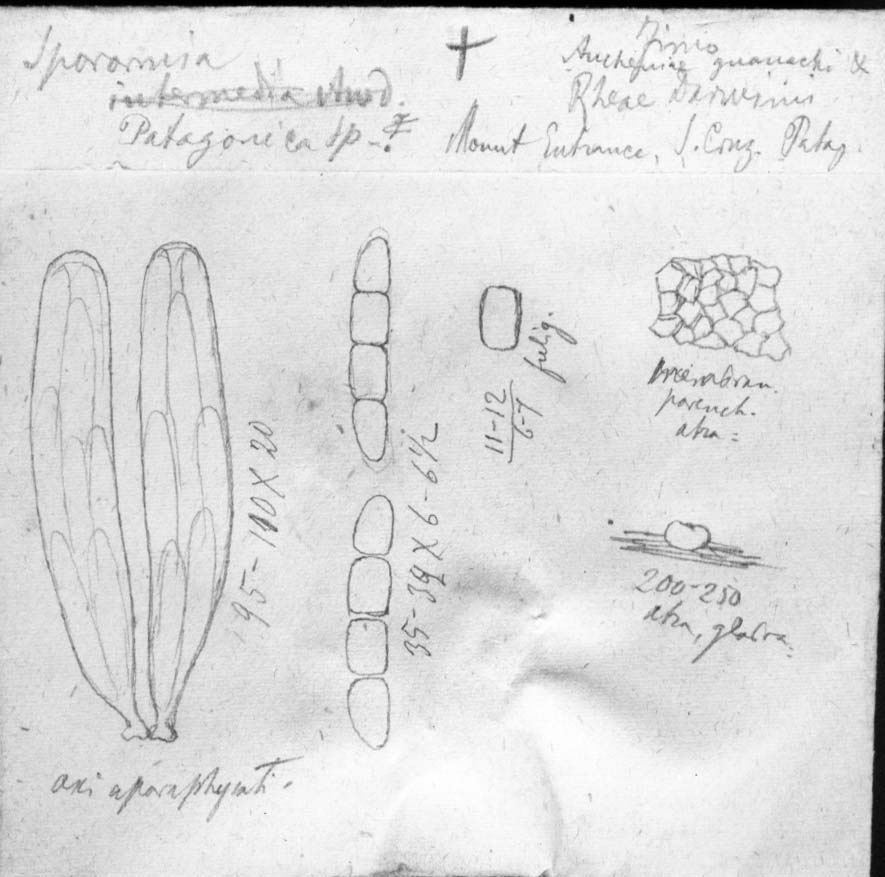 Sporormia
intermedia Awd.
Patagonica Sp.
+
Fimo
Aucheniae guanachi &
Rheae Darwinii
Mount Entrance, S. Cruz. Patag.
95-100 X 20
35-39 X 6-6 1/2
11-12
6-7
fulig.
membran.
parench.
atra =
200-250
atra, glabra
asci aparaphysati.